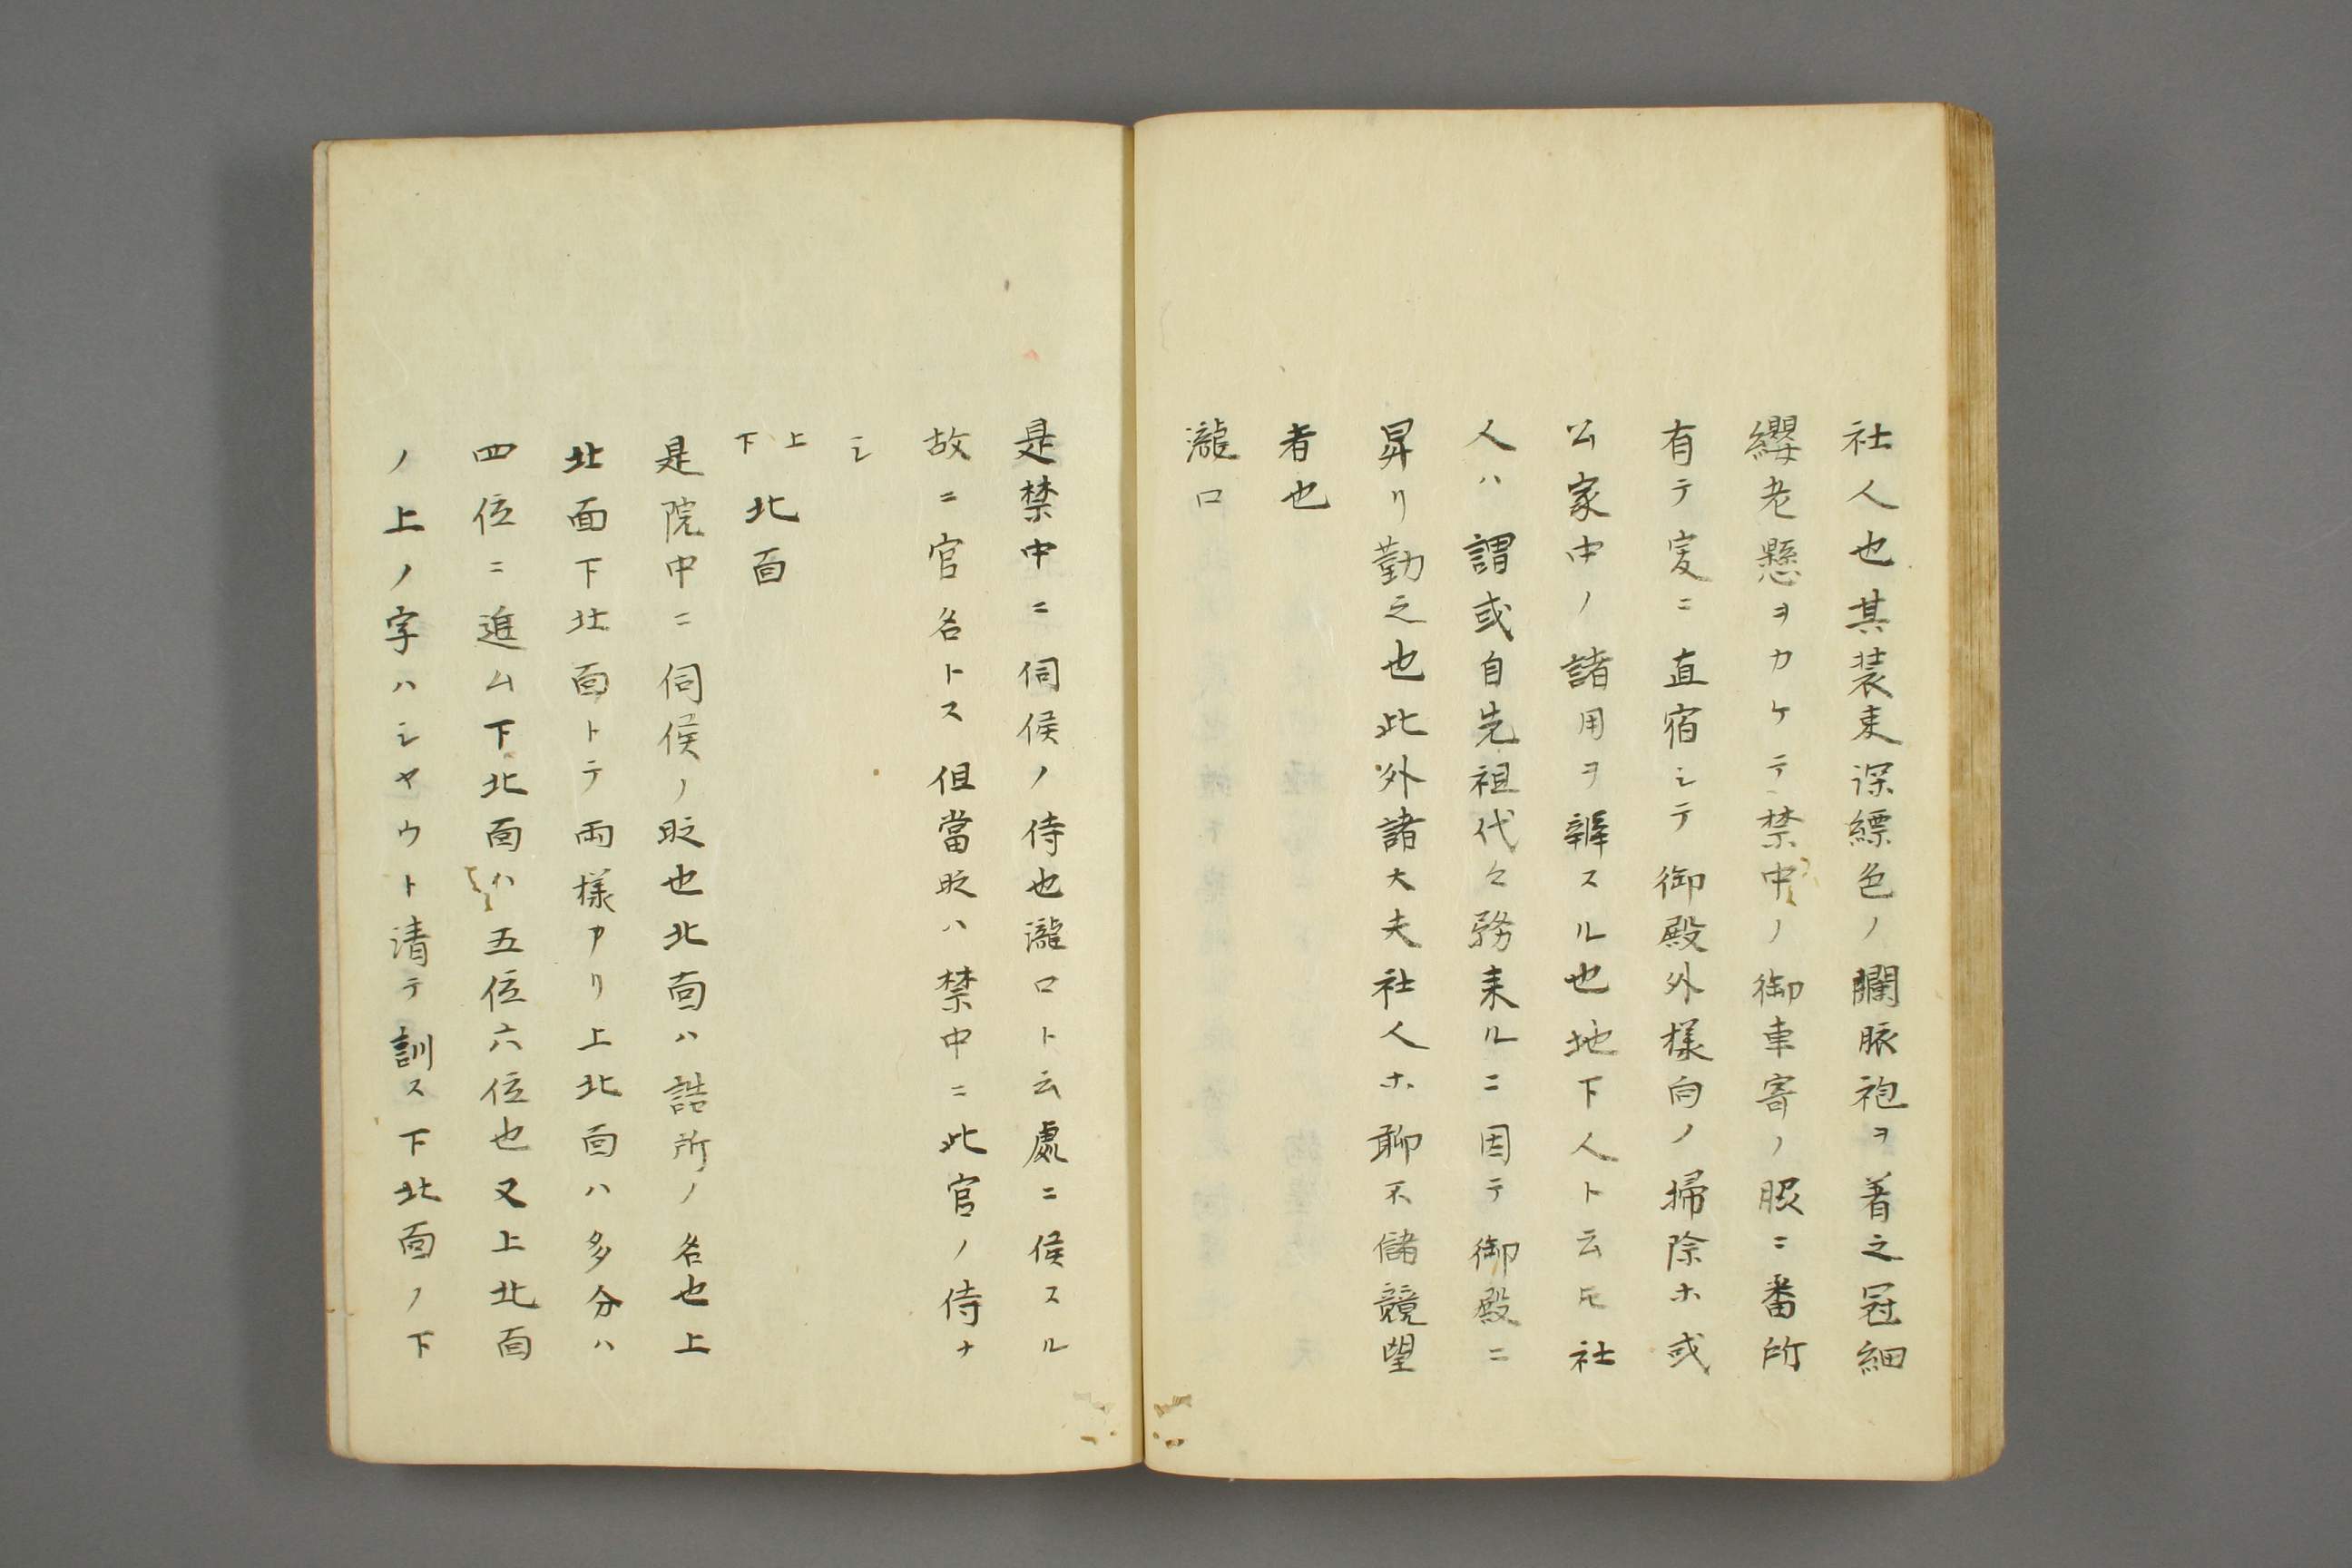 社人也其装束深縹色ノ闕腋袍ヲ着之冠細
纓老懸ヲカケテ禁中ノ御車寄ノ脵ニ番所
有テ爰ニ直宿シテ御殿外様向ノ掃除ホ或
公家中ノ諸用ヲ辨スル也地下人ト云𪜈社
人ハ謂或自先祖代々務来ルニ因テ御殿ニ
昇リ勤之也此外諸大夫社人ホ聊不儲競望
者也
瀧口
是禁中ニ伺候ノ侍也瀧口ト云處ニ候スル
故ニ官名トス但當時ハ禁中ニ此官ノ侍ナ
シ
上下北面
是院中ニ伺候ノ時也北面ハ詰所ノ名也上
北面下北面トテ両様アリ上北面ハ多分ハ
四位ニ進ム下北面ハ五位六位也又上北面
ノ上ノ字ハシヤウト清テ訓ス下北面ノ下